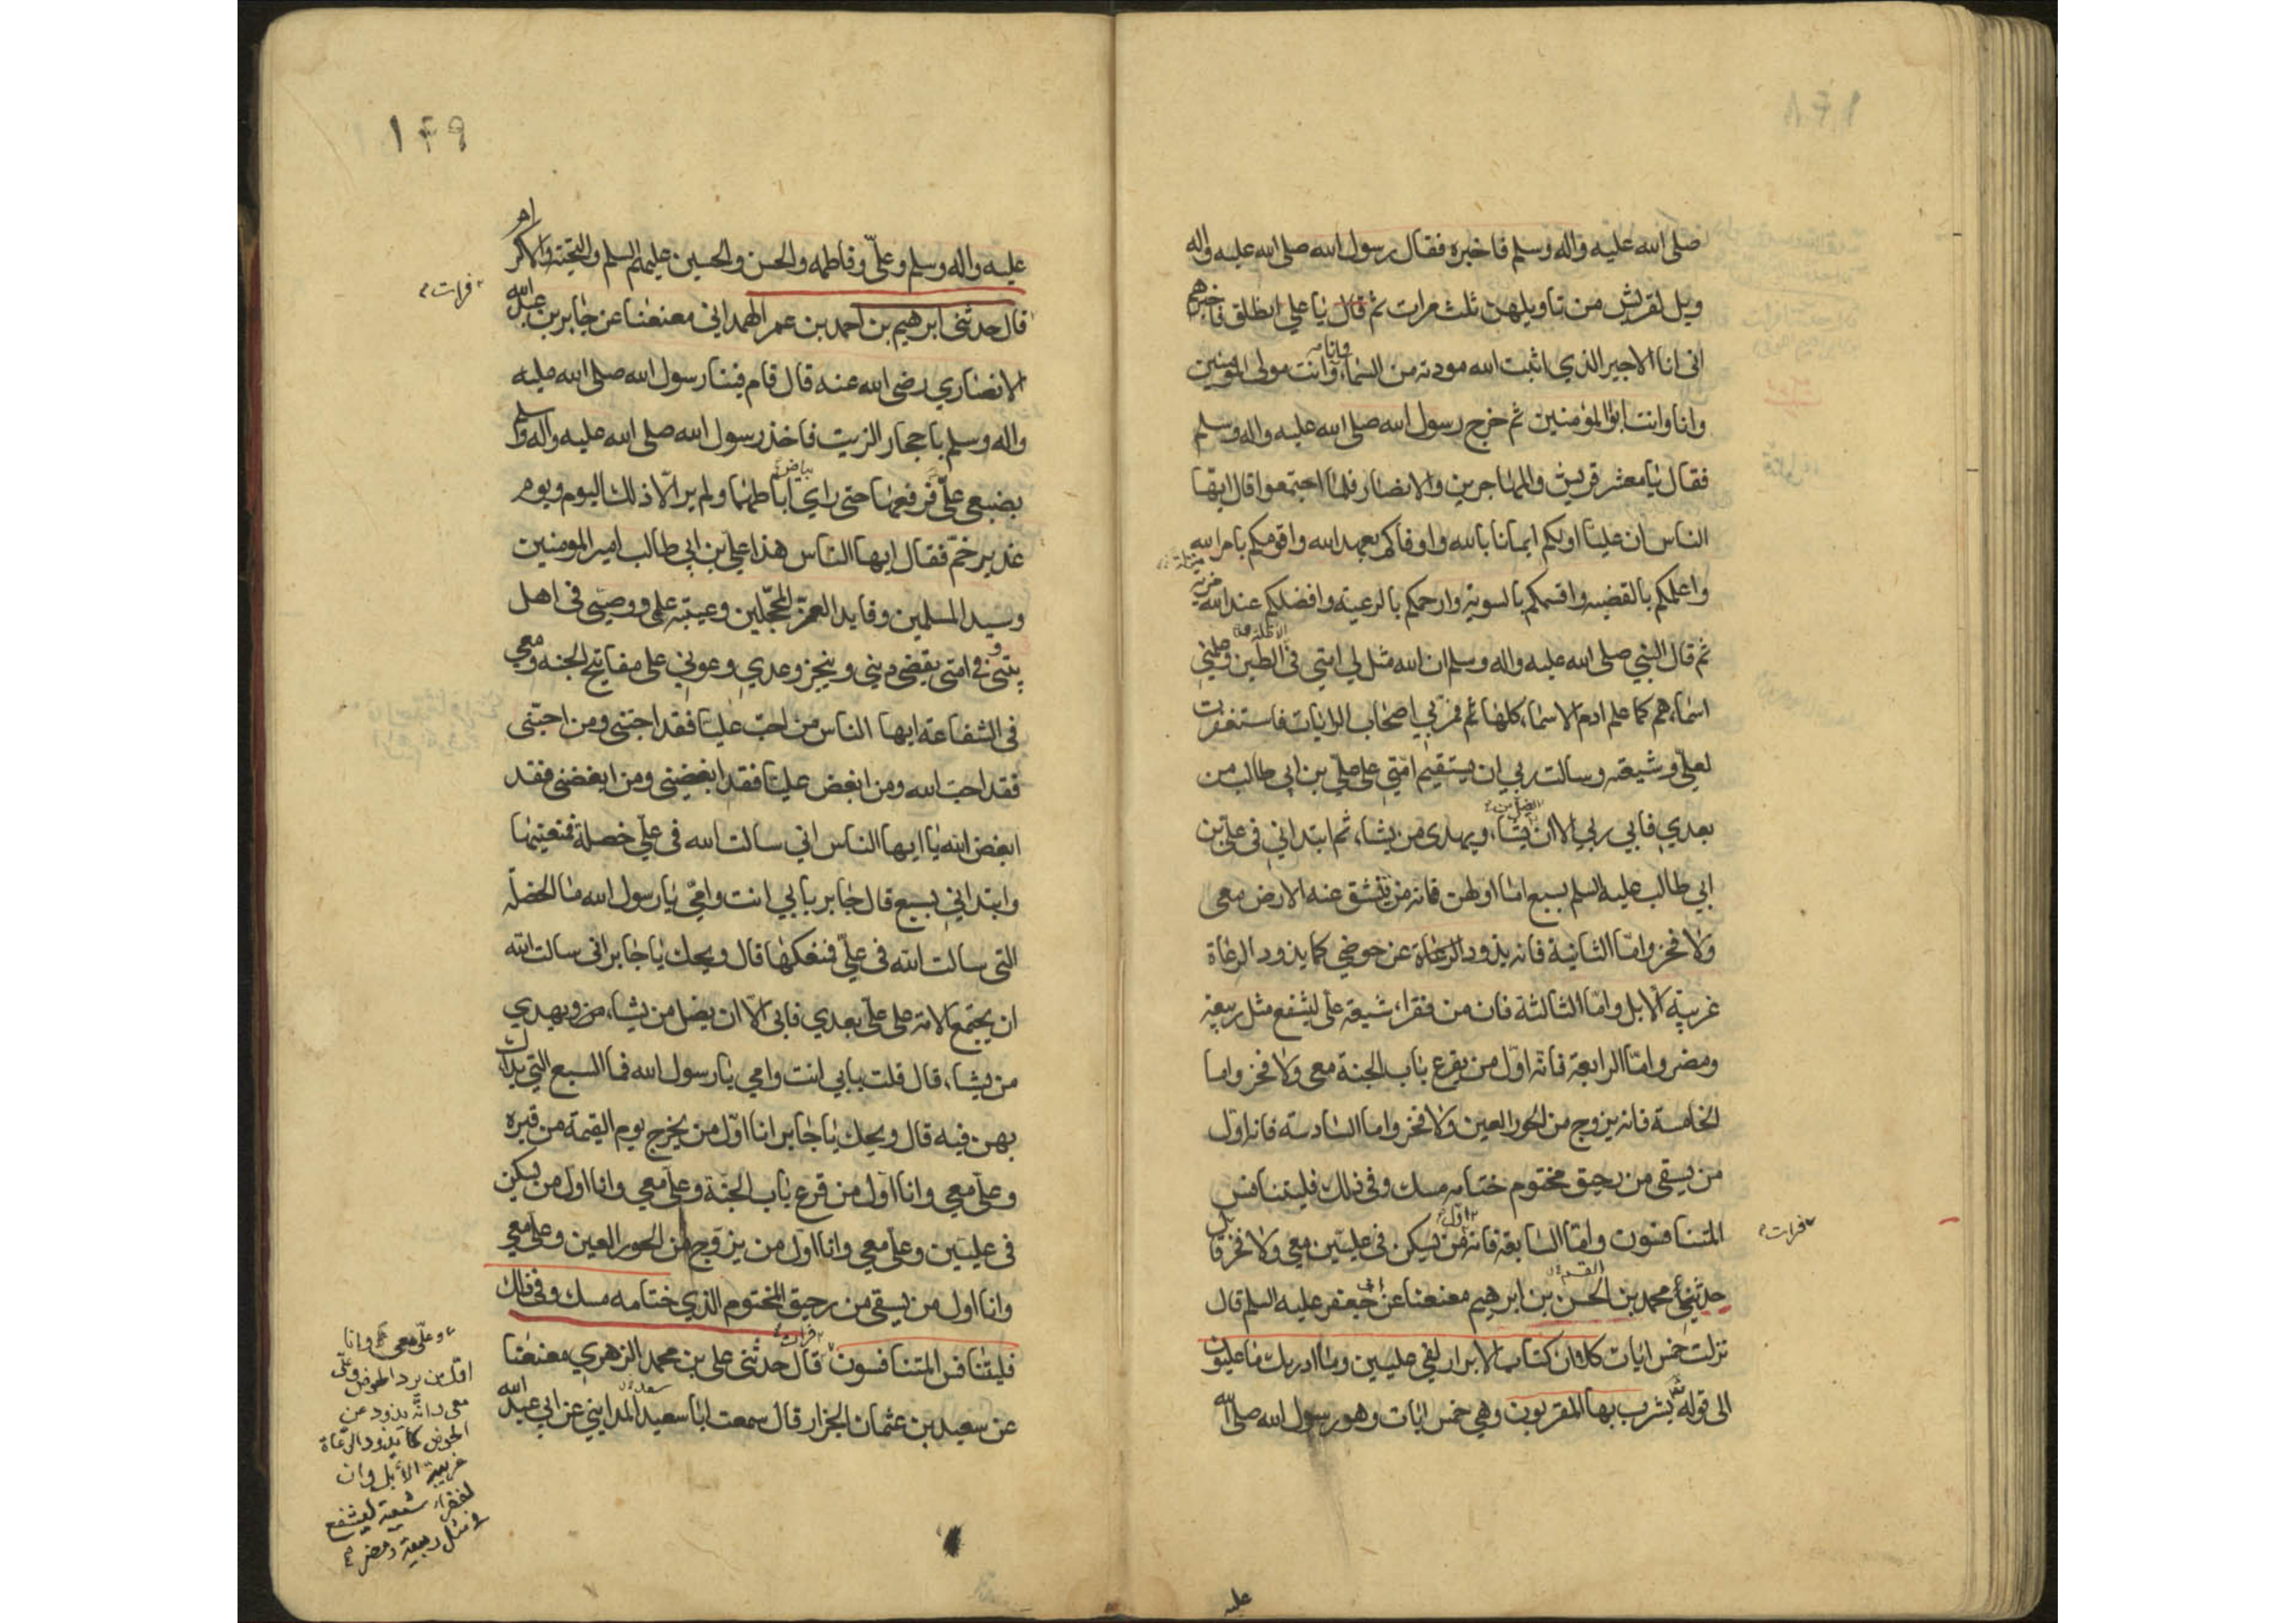 صلى الله عليه واله وسلم فاخبره فقال رسول الله صلى الله عليه واله
ويل لقريش من تاويلهن ثلث مرات ثم قال يا علي انطلق فاخبرهم
انى انا الاجير الذي اثبت الله مودته من السماء وانت مولى المؤمنين
وانا
وانا وانت ابوا المؤمنين ثم خرج رسول الله صلى الله عليه واله وسلم
فقال يا معشر قريش والمهاجرين والانصار فلما اجتمعوا قال ايها
الناس ان عليا اولكم ايمانا بالله واوفاكم بعهد الله واقومكم بامر الله
واعلمكم بالقضيه واقسمكم بالسوية وارحمكم بالرعية وافضلكم عند الله
مزية
ثم قال النبي صلى الله عليه واله وسلم ان الله مثل لي امتي في الطين وعلمني
الاظلة
اسماءهم كما علم ادم الاسماء كلها ثم مر بي اصحاب الرايات فاستغفرت
لعلي وشيعته وسالت ربي ان يستقيم امتي على علي بن ابي طالب من
بعدي فابي ربي الا ان يشاء ويهدى من يشاء ثم ابتداني في علي بن
يضل من
ابي طالب عليه السلم بسبع اما اولهن فانه من تنشق عنه الارض معى
ولا فخر واما الثانية فانه يذود الرعاة عن حوضي كما يذود الرعاة
غريبة الابل واما الثالثة فان من فقراء شيعة على ليشفع مثل ربيعة
ومضر واما الرابعة فانه اول من يقرع باب الجنة معى ولا فخر واما
الخامسة فانه يزوج من الحور العين ولا فخر واما السادسة فانه اول
من يسقى من رحيق مختوم ختامه مسك وفى ذلك فليتنافس
المتنافسون واما السابعة فانه من يسكن فى عليين معي ولا فخر قال
اول
فرات
حدثني محمد بن الحسن بن ابرهيم معنعنا عن ابى جعفر عليه السلم قال
القسم
نزلت خمس ايات كلا ان كتاب الابرار لفي عليين وما ادريك ما عليون
الى قوله يشرب بها المقربون وهي خمس ايات وهو رسول الله صلى الله
عليه
١٤٩
عليه واله وسلم وعلي وفاطمه والحسن والحسين عليهم السلم والتحية والاكرام
فرات
قال حدثنى ابرهيم بن احمد بن عمر الهمداني معنعنا عن جابر بن عبد الله
الانصاري رضى الله عنه قال قام فينا رسول الله صلى الله عليه
واله وسلم باحجار الزيت فاخذ رسول الله صلى الله عليه واله وسلم
بضبعي علي فرفعها حتى راي اباطهما ولم ير الا ذلك اليوم ويوم
بياض
غدير خم فقال ايها الناس هذا علي بن ابي طالب امير المومنين
وسيد المسلمين وقايد الغر المحجلين وعيبة علمي ووصيي فى اهل
بيتى وفي امتى يقضي ديني وينجز وعدي وعوني على مفاتيح الجنة ومعي
في الشفاعة ايها الناس من احب عليا فقد احبنى ومن احبنى
فقد احب الله ومن ابغض عليا فقد ابغضنى ومن ابغضنى فقد
ابغض الله يا ايها الناس اني سالت الله فى علي خصلة فمنعنيها
وابتداني بسبع قال جابر بابي انت وامي يا رسول الله ما الخصلة
التى سالت الله فى علي فمنعكها قال ويحك يا جابر انى سالت الله
ان يجتمع الامة على علي بعدي فابى الا ان يضل من يشاء ويهدي
من يشاء قال قلت بابي انت وامي يا رسول الله فما السبع التي بداك
بهن فيه قال ويحك يا جابر انا اول من يخرج يوم القيمة من قبره
وعلي معي وانا اول من قرع باب الجنة وعلي معي وانا اول من يسكن
فى عليين وعلي معي وانا اول من يزوج من الحور العين وعلي معي
وانا اول من يسقى من رحيق المختوم الذي ختامه مسك وفى ذلك
فليتنافس المتنافسون قال حدثنى على بن محمد الزهري معنعنا
فرات
عن سعيد بن عثمان الجزار قال سمعت ابا سعيد المدايني عن ابي عبد الله
سعد
وعلي معي وانا
اول من يرد الحوض وعلي
معي وانه يذود عن
الحوض كما يذود الرعاة
غريبة الابل وان
لفقراء شيعته ليشفع
فى مثل ربيعة ومضر